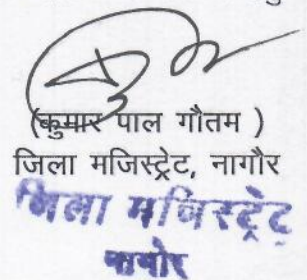 (कुमार पाल गौतम )
जिला मजिस्ट्रेट, नागौर
जिला मजिस्ट्रेट
नागोर